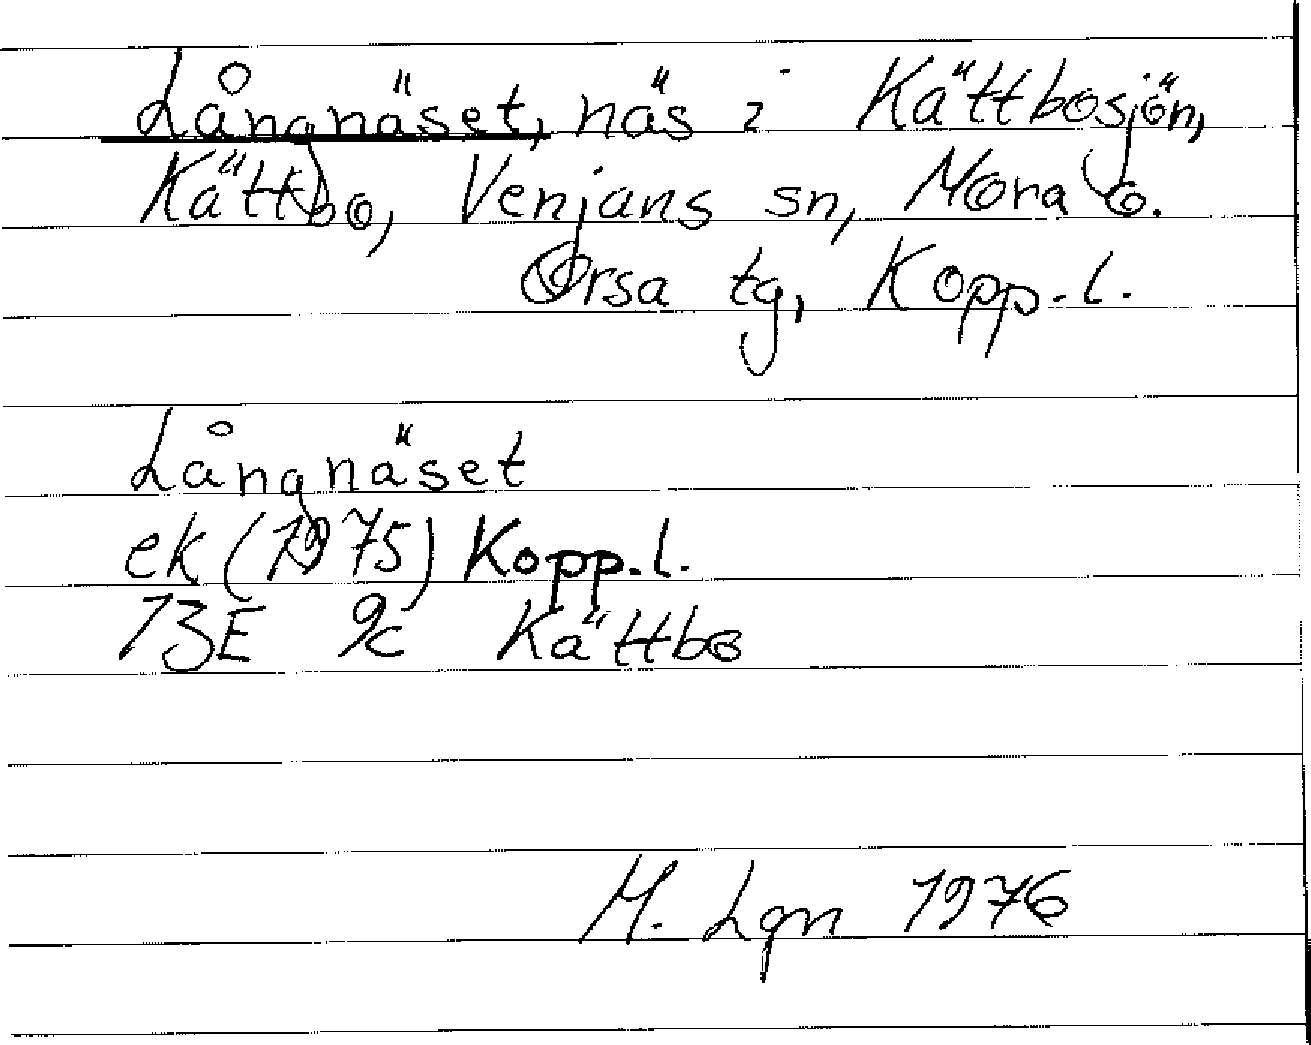 Långnäset, näs i Kättbosjön,
Kättbo, Venjans sn, Mora o.
Orsa tg, Kopp.l.
Långnäset
ek (1975) Kopp.l.
13E 9c Kättbo
M. Lgn 1976